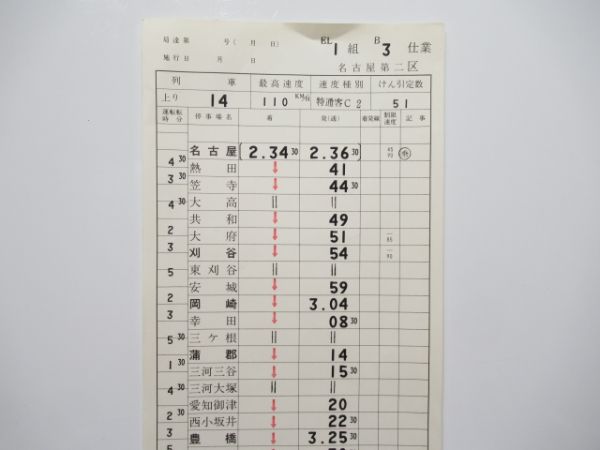 局達第 号( 月 日) EL1組 B3 仕業
施行日 月 日 名古屋第二区
列 車 最高速度 速度種別 けん引定数
上り 14 110 KM/H 特通客C2 51
運転時分 停車場名 着 発(通) 着発線 制限速度 記事
名古屋 2.34 30 2.36 30 45
4 30 熱田 ↓ 41
3 30 笠寺 ↓ 44 30
大高 || ||
4 30 共和 ↓ 49
2 大府 ↓ 51 85
3 刈谷 ↓ 54 90
東刈谷 || ||
5 安城 ↓ 59
2 岡崎 ↓ 3.04
3 幸田 ↓ 08 30
三ケ根 || ||
5 30 蒲郡 ↓ 14
1 30 三河三谷 ↓ 15 30
三河大塚 || ||
4 30 愛知御津 ↓ 20
2 30 西小坂井 ↓ 22 30
3 豊橋 ↓ 3.25 30
5